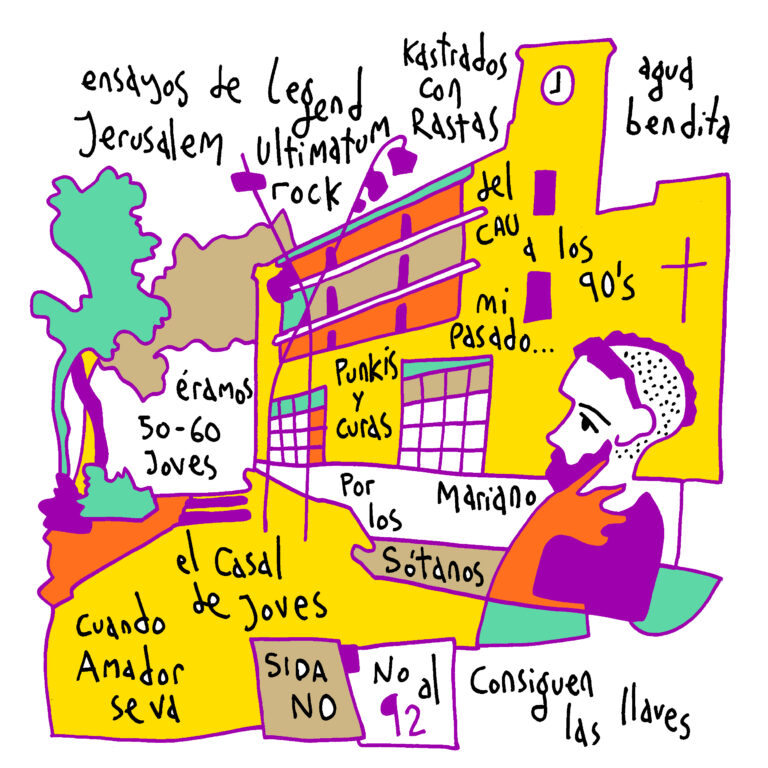 ensayos de legend
Jerusalem ultimatum
rock
Kastrados
con
Rastas
agua
bendita
del
CAU
a los
90's
mi
pasado...
Punkis
y
curas
éramos
50-60
Joves
Por
los
Sótanos
Mariano
el Casal
de Joves
cuando
Amador
se va
SIDA
NO
No al
92
Consiguen
las llaves